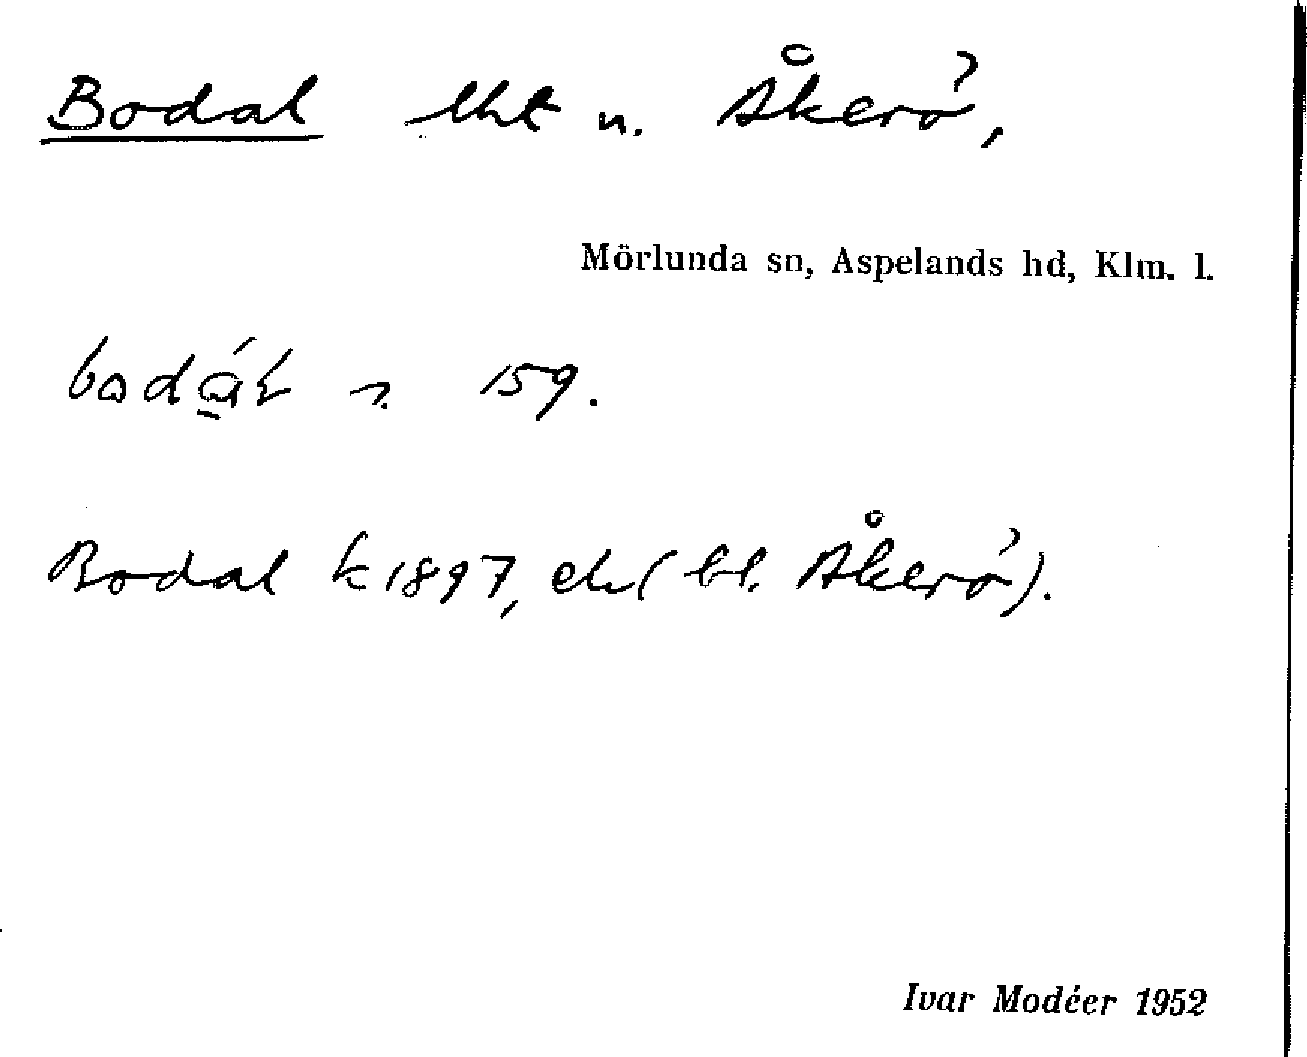 Bodal lht n. Åkerö,
Mörlunda sn, Aspelands hd, Klm. l.
bodá̱ɫ n. 159.
Bodal k 1897, ek (bl. Åkerö).
Ivar Modéer 1952